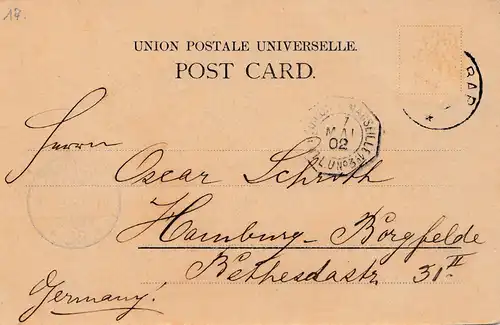 17.
UNION POSTALE UNIVERSELLE.
POST CARD.
MARSEILLE
7
MAI
02
Herrn
Oscar Schrith
Hamburg-Borgfelde
Bethesdastr. 31 II
Germany!